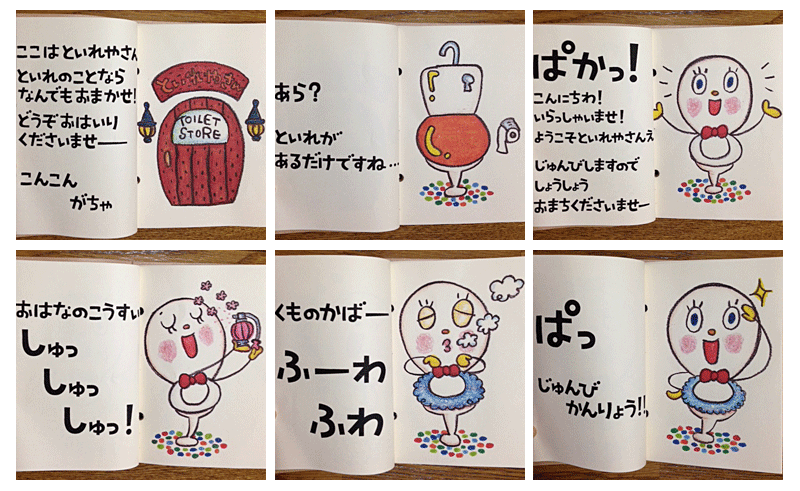 ここはといれやさん
といれのことなら
なんでもおまかせ!
どうぞおはいり
くださいませーー
こんこん
がちゃ
といれやさん
TOILET
STORE
あら?
といれが
あるだけですね…
ぱかっ!
こんにちわ!
いらっしゃいませ!
ようこそといれやさんえ
じゅんびしますので
しょうしょう
おまちくださいませー
おはなのこうすい
しゅっ
しゅっ
しゅっ!
くものかばー
ふーわ
ふわ
ぱっ
じゅんび
かんりょう!!